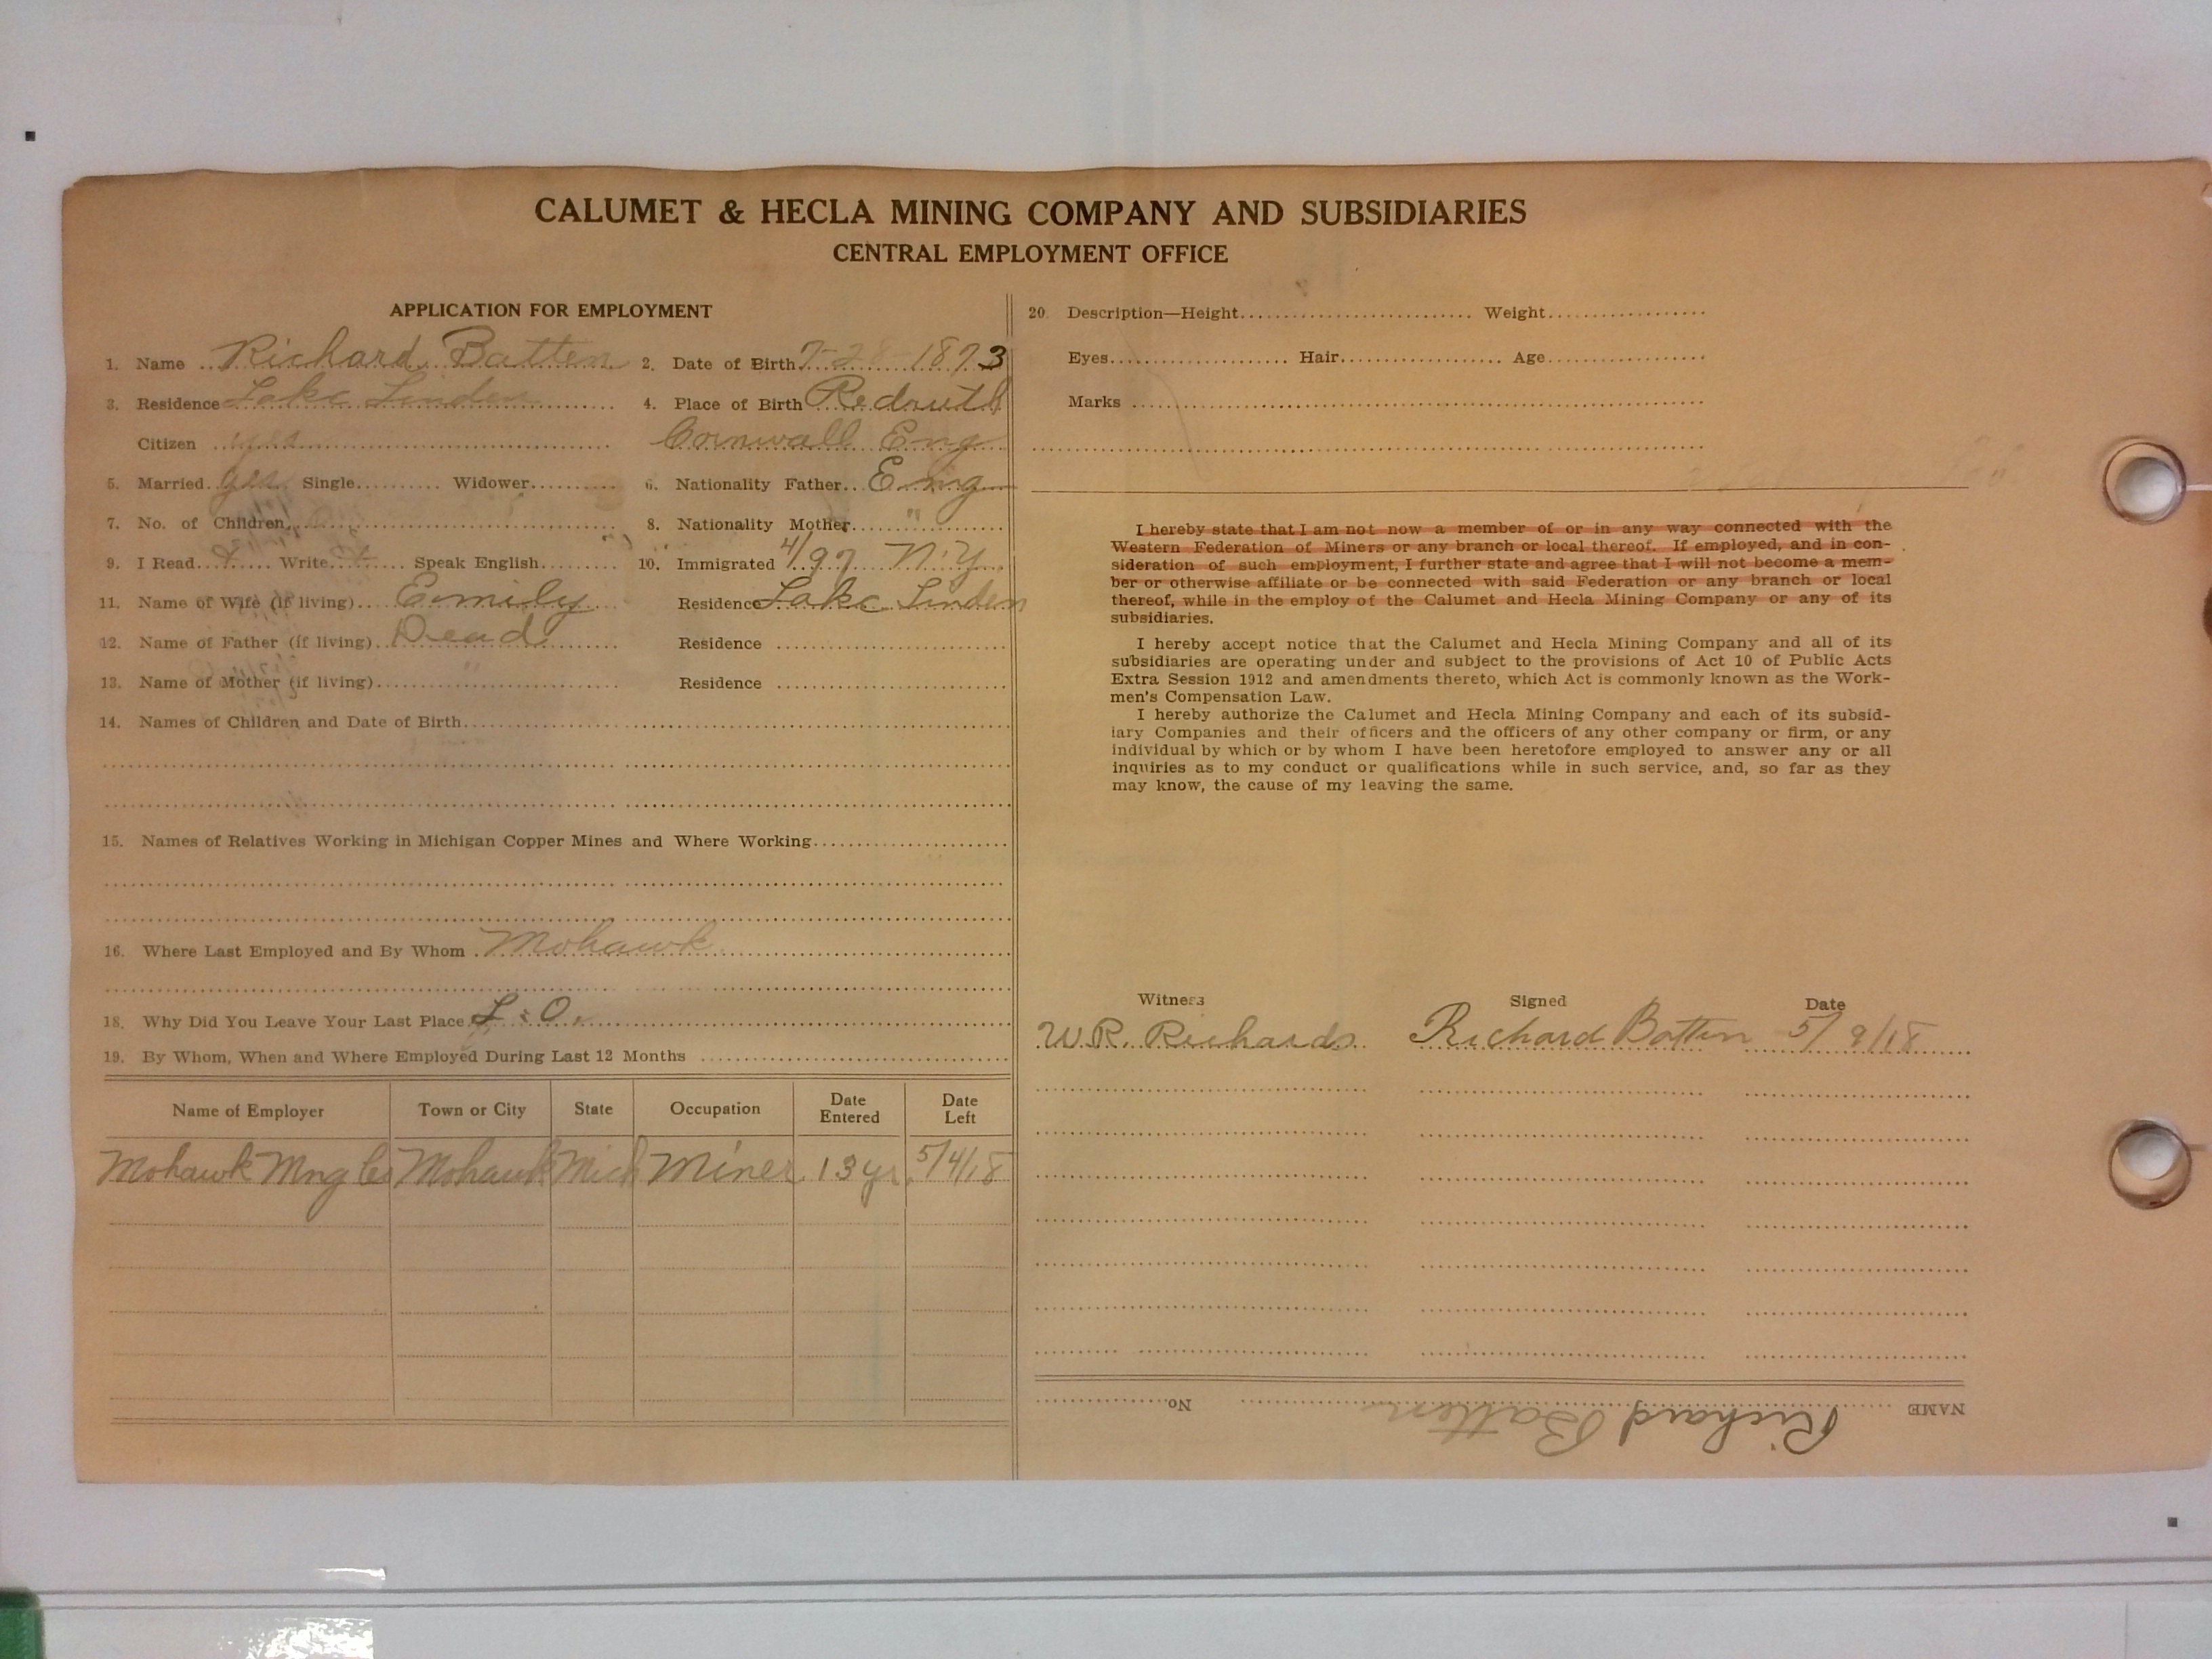 CALUMET & HECLA MINING COMPANY AND SUBSIDIARIES
CENTRAL EMPLOYMENT OFFICE
APPLICATION FOR EMPLOYMENT
1. Name Richard Batten 2. Date of Birth 7-28-1873
3. Residence Lake Linden 4. Place of Birth Redruth
Citizen yes Cornwall Eng
5. Married yes Single Widower 6. Nationality Father Eng
7. No. of Children 8. Nationality Mother "
9. I Read Write Speak English 10. Immigrated 4/97 N.Y.
11. Name of Wife (if living) Emily Residence Lake Linden
12. Name of Father (if living) Dead Residence
13. Name of Mother (if living) " Residence
14. Names of Children and Date of Birth
15. Names of Relatives Working in Michigan Copper Mines and Where Working
16. Where Last Employed and By Whom Mohawk
18. Why Did You Leave Your Last Place L. O.
19. By Whom, When and Where Employed During Last 12 Months
Name of Employer Town or City State Occupation Date Entered Date Left
Mohawk Mng Co Mohawk Mich Miner 13 yr. 5/4/18
20. Description—Height Weight
Eyes Hair Age
Marks
I hereby state that I am not now a member of or in any way connected with the
Western Federation of Miners or any branch or local thereof. If employed, and in con-
sideration of such employment, I further state and agree that I will not become a mem-
ber or otherwise affiliate or be connected with said Federation or any branch or local
thereof, while in the employ of the Calumet and Hecla Mining Company or any of its
subsidiaries.
I hereby accept notice that the Calumet and Hecla Mining Company and all of its
subsidiaries are operating under and subject to the provisions of Act 10 of Public Acts
Extra Session 1912 and amendments thereto, which Act is commonly known as the Work-
men's Compensation Law.
I hereby authorize the Calumet and Hecla Mining Company and each of its subsid-
iary Companies and their officers and the officers of any other company or firm, or any
individual by which or by whom I have been heretofore employed to answer any or all
inquiries as to my conduct or qualifications while in such service, and, so far as they
may know, the cause of my leaving the same.
Witness Signed Date
W.R. Richards Richard Batten 5/9/18
NAME Richard Batten No.